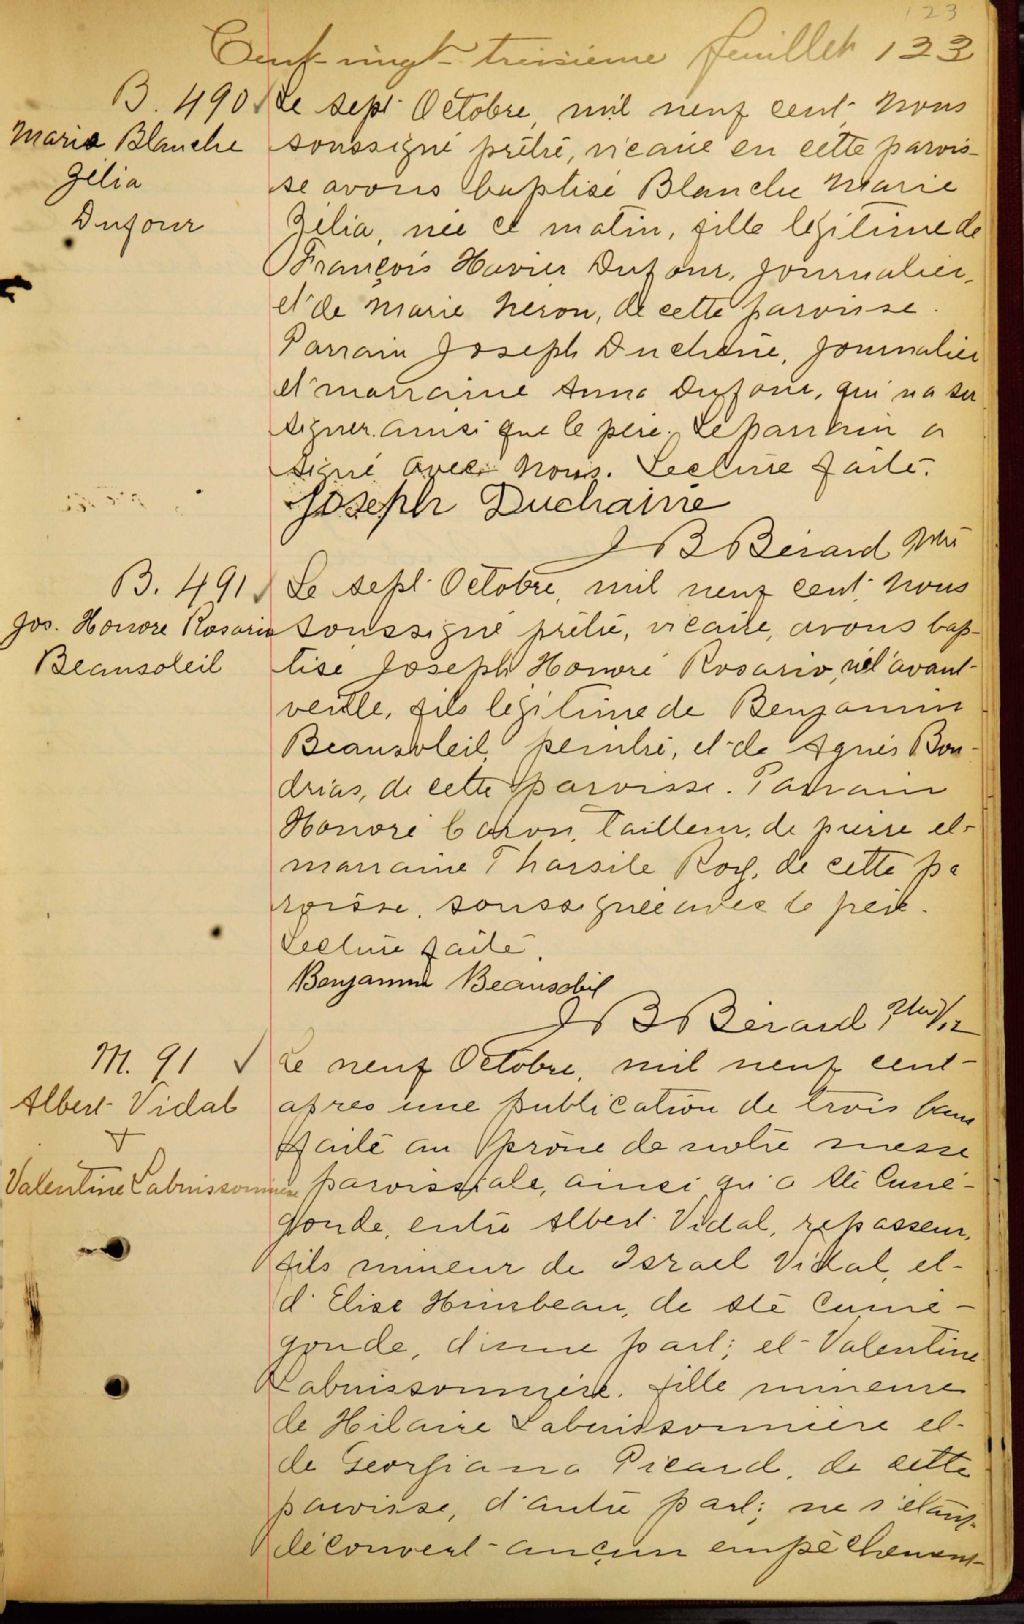 123
Cent-vingt-troisième feuillet 123
B. 490
Marie Blanche
Zélia
Dufour
Le sept Octobre, mil neuf cent, nous
soussigné prêtre, vicaire en cette parois-
se avons baptisé Blanche Marie
Zélia, née ce matin, fille légitime de
François Xavier Dufour, journalier,
et de Marie Néron, de cette paroisse.
Parrain Joseph Duchêne, journalier
et marraine Anna Dufour, qui n'a su
signer ainsi que le père. Le parrain a
signé avec nous. Lecture faite.
Joseph Duchaine
J B Bérard ptre
B. 491
Jos. Honore Rosario
Beausoleil
Le sept Octobre, mil neuf cent, nous
soussigné prêtre, vicaire, avons bap-
tisé Joseph Honoré Rosario, né l'avant-
veille, fils légitime de Benjamin
Beausoleil, peintre, et de Agnès Bou-
drias, de cette paroisse. Parrain
Honoré Caron, tailleur de pierre et
marraine Tharsile Roy, de cette pa
roisse, soussignée avec le père.
Lecture faite.
Benjamin Beausoleil
J B Bérard ptre
M. 91
Albert Vidal
+
Valentine Labuissonnière
Le neuf Octobre, mil neuf cent
après une publication de trois bans
faite au prône de notre messe
paroissiale, ainsi qu'à Ste Cuné-
gonde, entre Albert Vidal, repasseur,
fils mineur de Israel Vidal, et
d'Elise Husbeau, de Ste Cuné-
gonde, d'une part; et Valentine
Labuissonnière, fille mineure
de Hilaire Labuissonnière et
de Georgiana Picard, de cette
paroisse, d'autre part; ne s'étant
découvert aucun empêchement